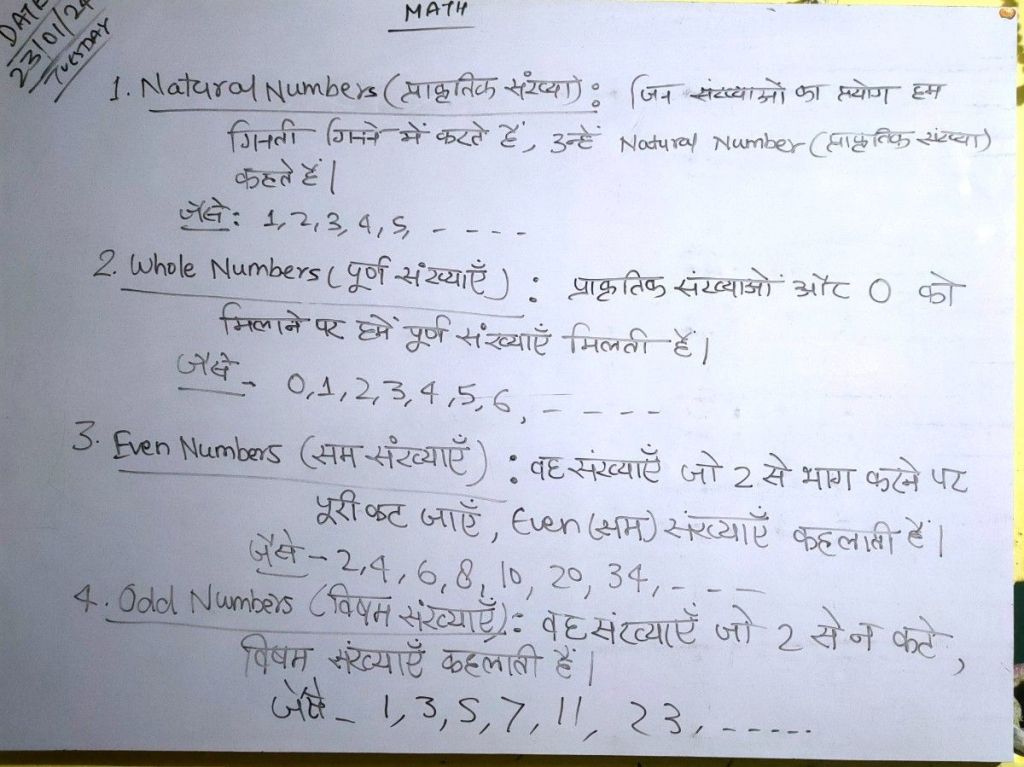 DATE
23/01/24
TUESDAY
MATH
1. Natural Numbers (प्राकृतिक संख्या) : जिन संख्याओं का प्रयोग हम
गिनती गिनने में करते हैं, उन्हें Natural Number (प्राकृतिक संख्या)
कहते हैं।
जैसे : 1, 2, 3, 4, 5, - - - -
2. Whole Numbers (पूर्ण संख्याएँ) : प्राकृतिक संख्याओं और 0 को
मिलाने पर हमें पूर्ण संख्याएँ मिलती हैं।
जैसे - 0, 1, 2, 3, 4, 5, 6, - - - -
3. Even Numbers (सम संख्याएँ) : वह संख्याएँ जो 2 से भाग करने पर
पूरी कट जाएँ, Even (सम) संख्याएँ कहलाती हैं।
जैसे - 2, 4, 6, 8, 10, 20, 34, - - -
4. Odd Numbers (विषम संख्याएँ) : वह संख्याएँ जो 2 से न कटे,
विषम संख्याएँ कहलाती हैं।
जैसे - 1, 3, 5, 7, 11, 23, - - - - -